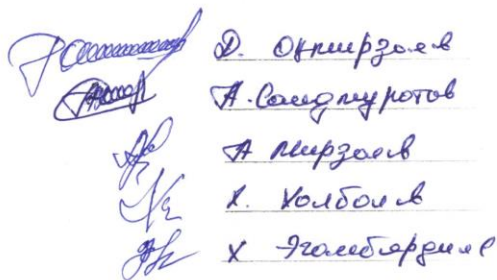 Д. Окмирзаев
А. Саидмуротов
А Мирзаев
Х. Холбоев
Х Эгамбердиев